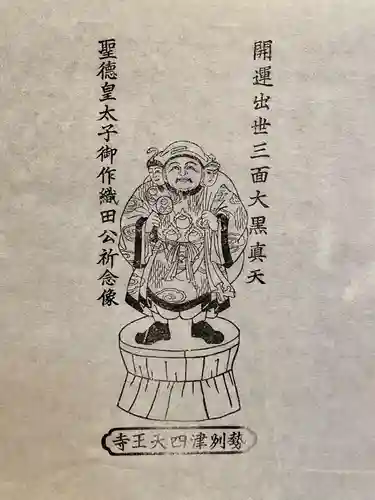 開運出世三面大黒真天
聖德皇太子御作織田公祈念像
勢刕津四天王寺